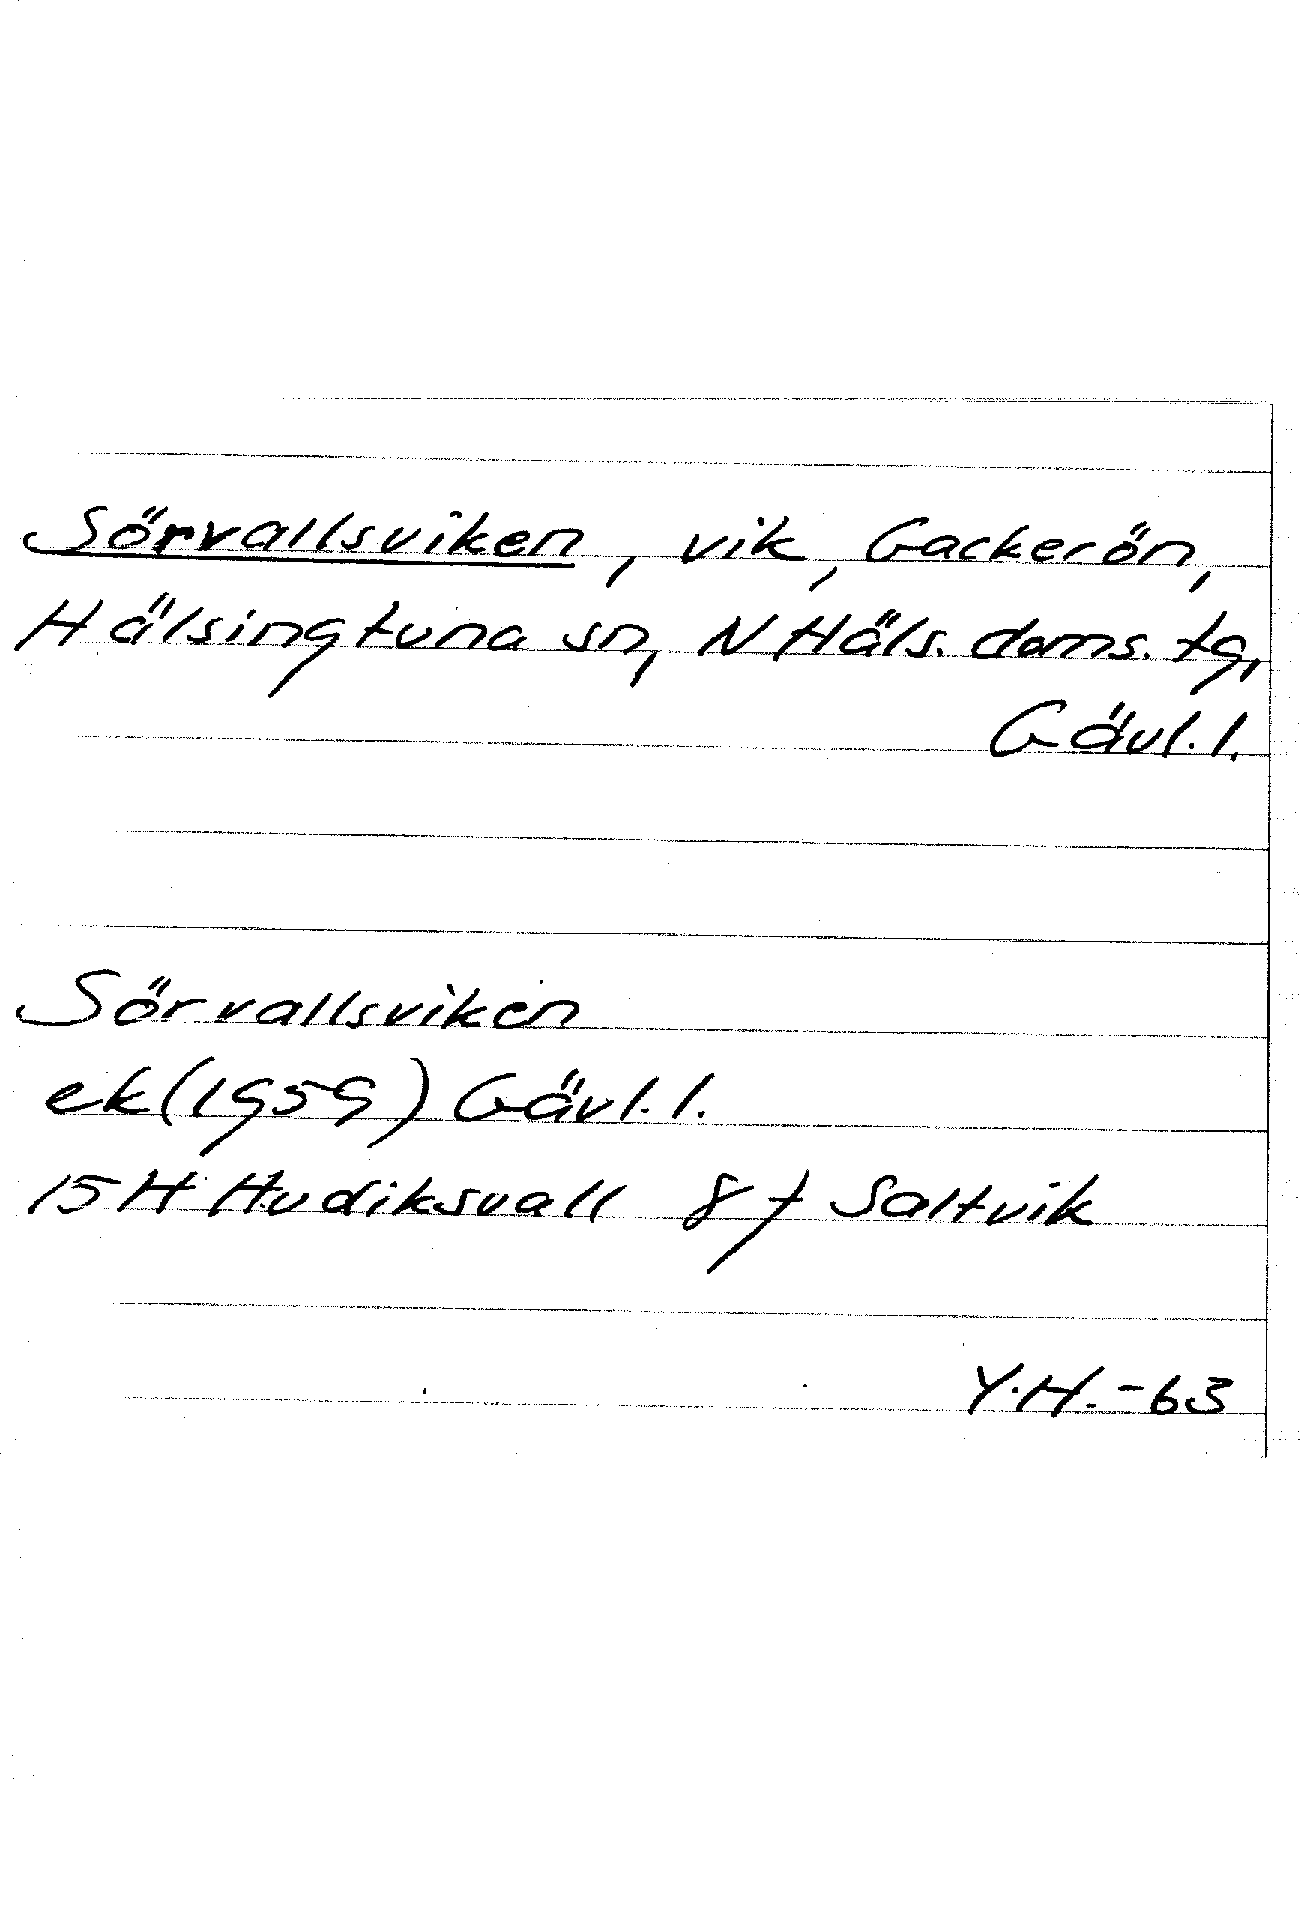 Sörvallsviken, vik, Gackerön,
Hälsingtuna sn, N Häls. doms. tg,
Gävl. l.
Sörvallsviken
ek (1959) Gävl. l.
15H Hudiksvall 8f Saltvik
Y.H. -63